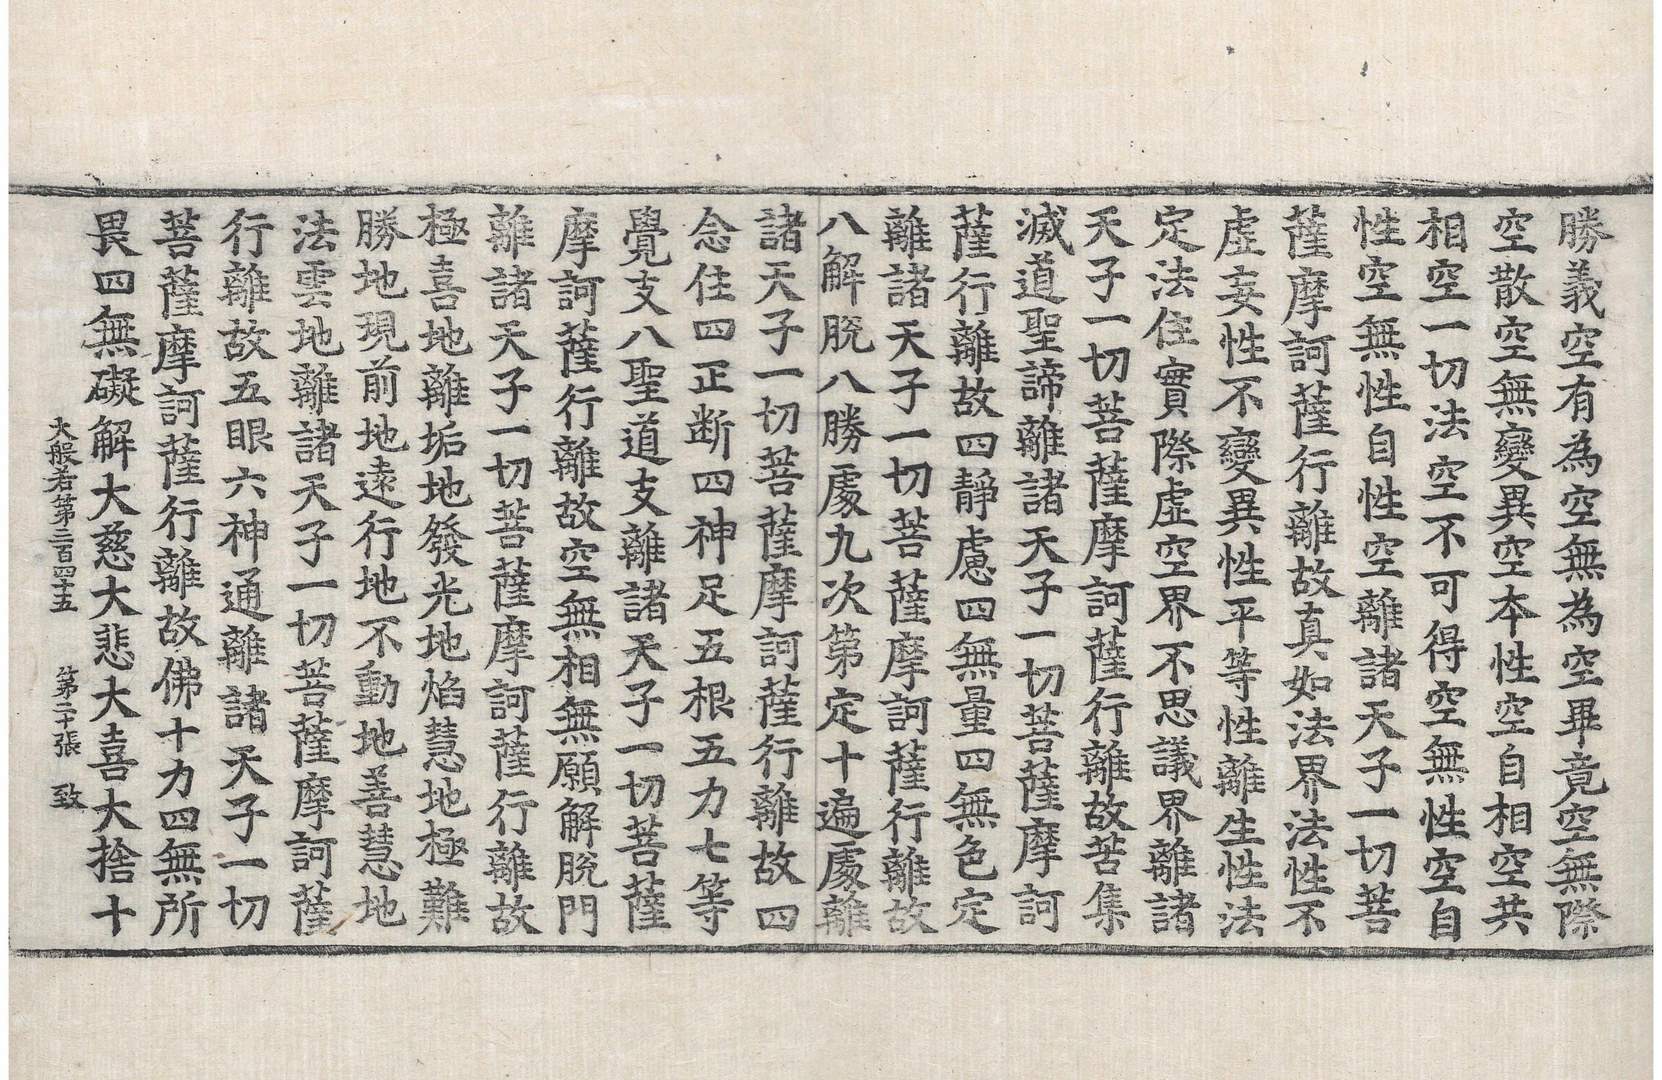 勝義空有為空無為空畢竟空無際
空散空無變異空本性空自相空共
相空一切法空不可得空無性空自
性空無性自性空離諸天子一切菩
薩摩訶薩行離故真如法界法性不
虛妄性不變異性平等性離生性法
定法住實際虛空界不思議界離諸
天子一切菩薩摩訶薩行離故苦集
滅道聖諦離諸天子一切菩薩摩訶
薩行離故四靜慮四無量四無色定
離諸天子一切菩薩摩訶薩行離故
八解脫八勝處九次第定十遍處離
諸天子一切菩薩摩訶薩行離故四
念住四正断四神足五根五力七等
覺支八聖道支離諸天子一切菩薩
摩訶薩行離故空無相無願解脫門
離諸天子一切菩薩摩訶薩行離故
極喜地離垢地發光地焰慧地極難
勝地現前地遠行地不動地善慧地
法雲地離諸天子一切菩薩摩訶薩
行離故五眼六神通離諸天子一切
菩薩摩訶薩行離故佛十力四無所
畏四無礙解大慈大悲大喜大捨十
大般若第三百四十五 第二十張 致